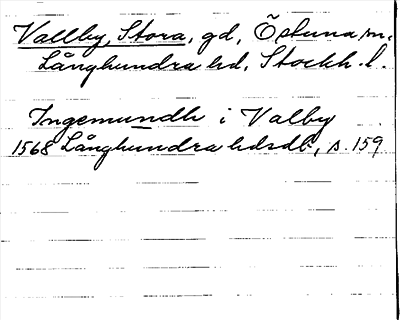 Vallby, Stora, gd, Östuna sn.
Långhundra hd, Stockh. l.
Ingemundh i Valby
1568 Långhundra hdsdb, s. 159